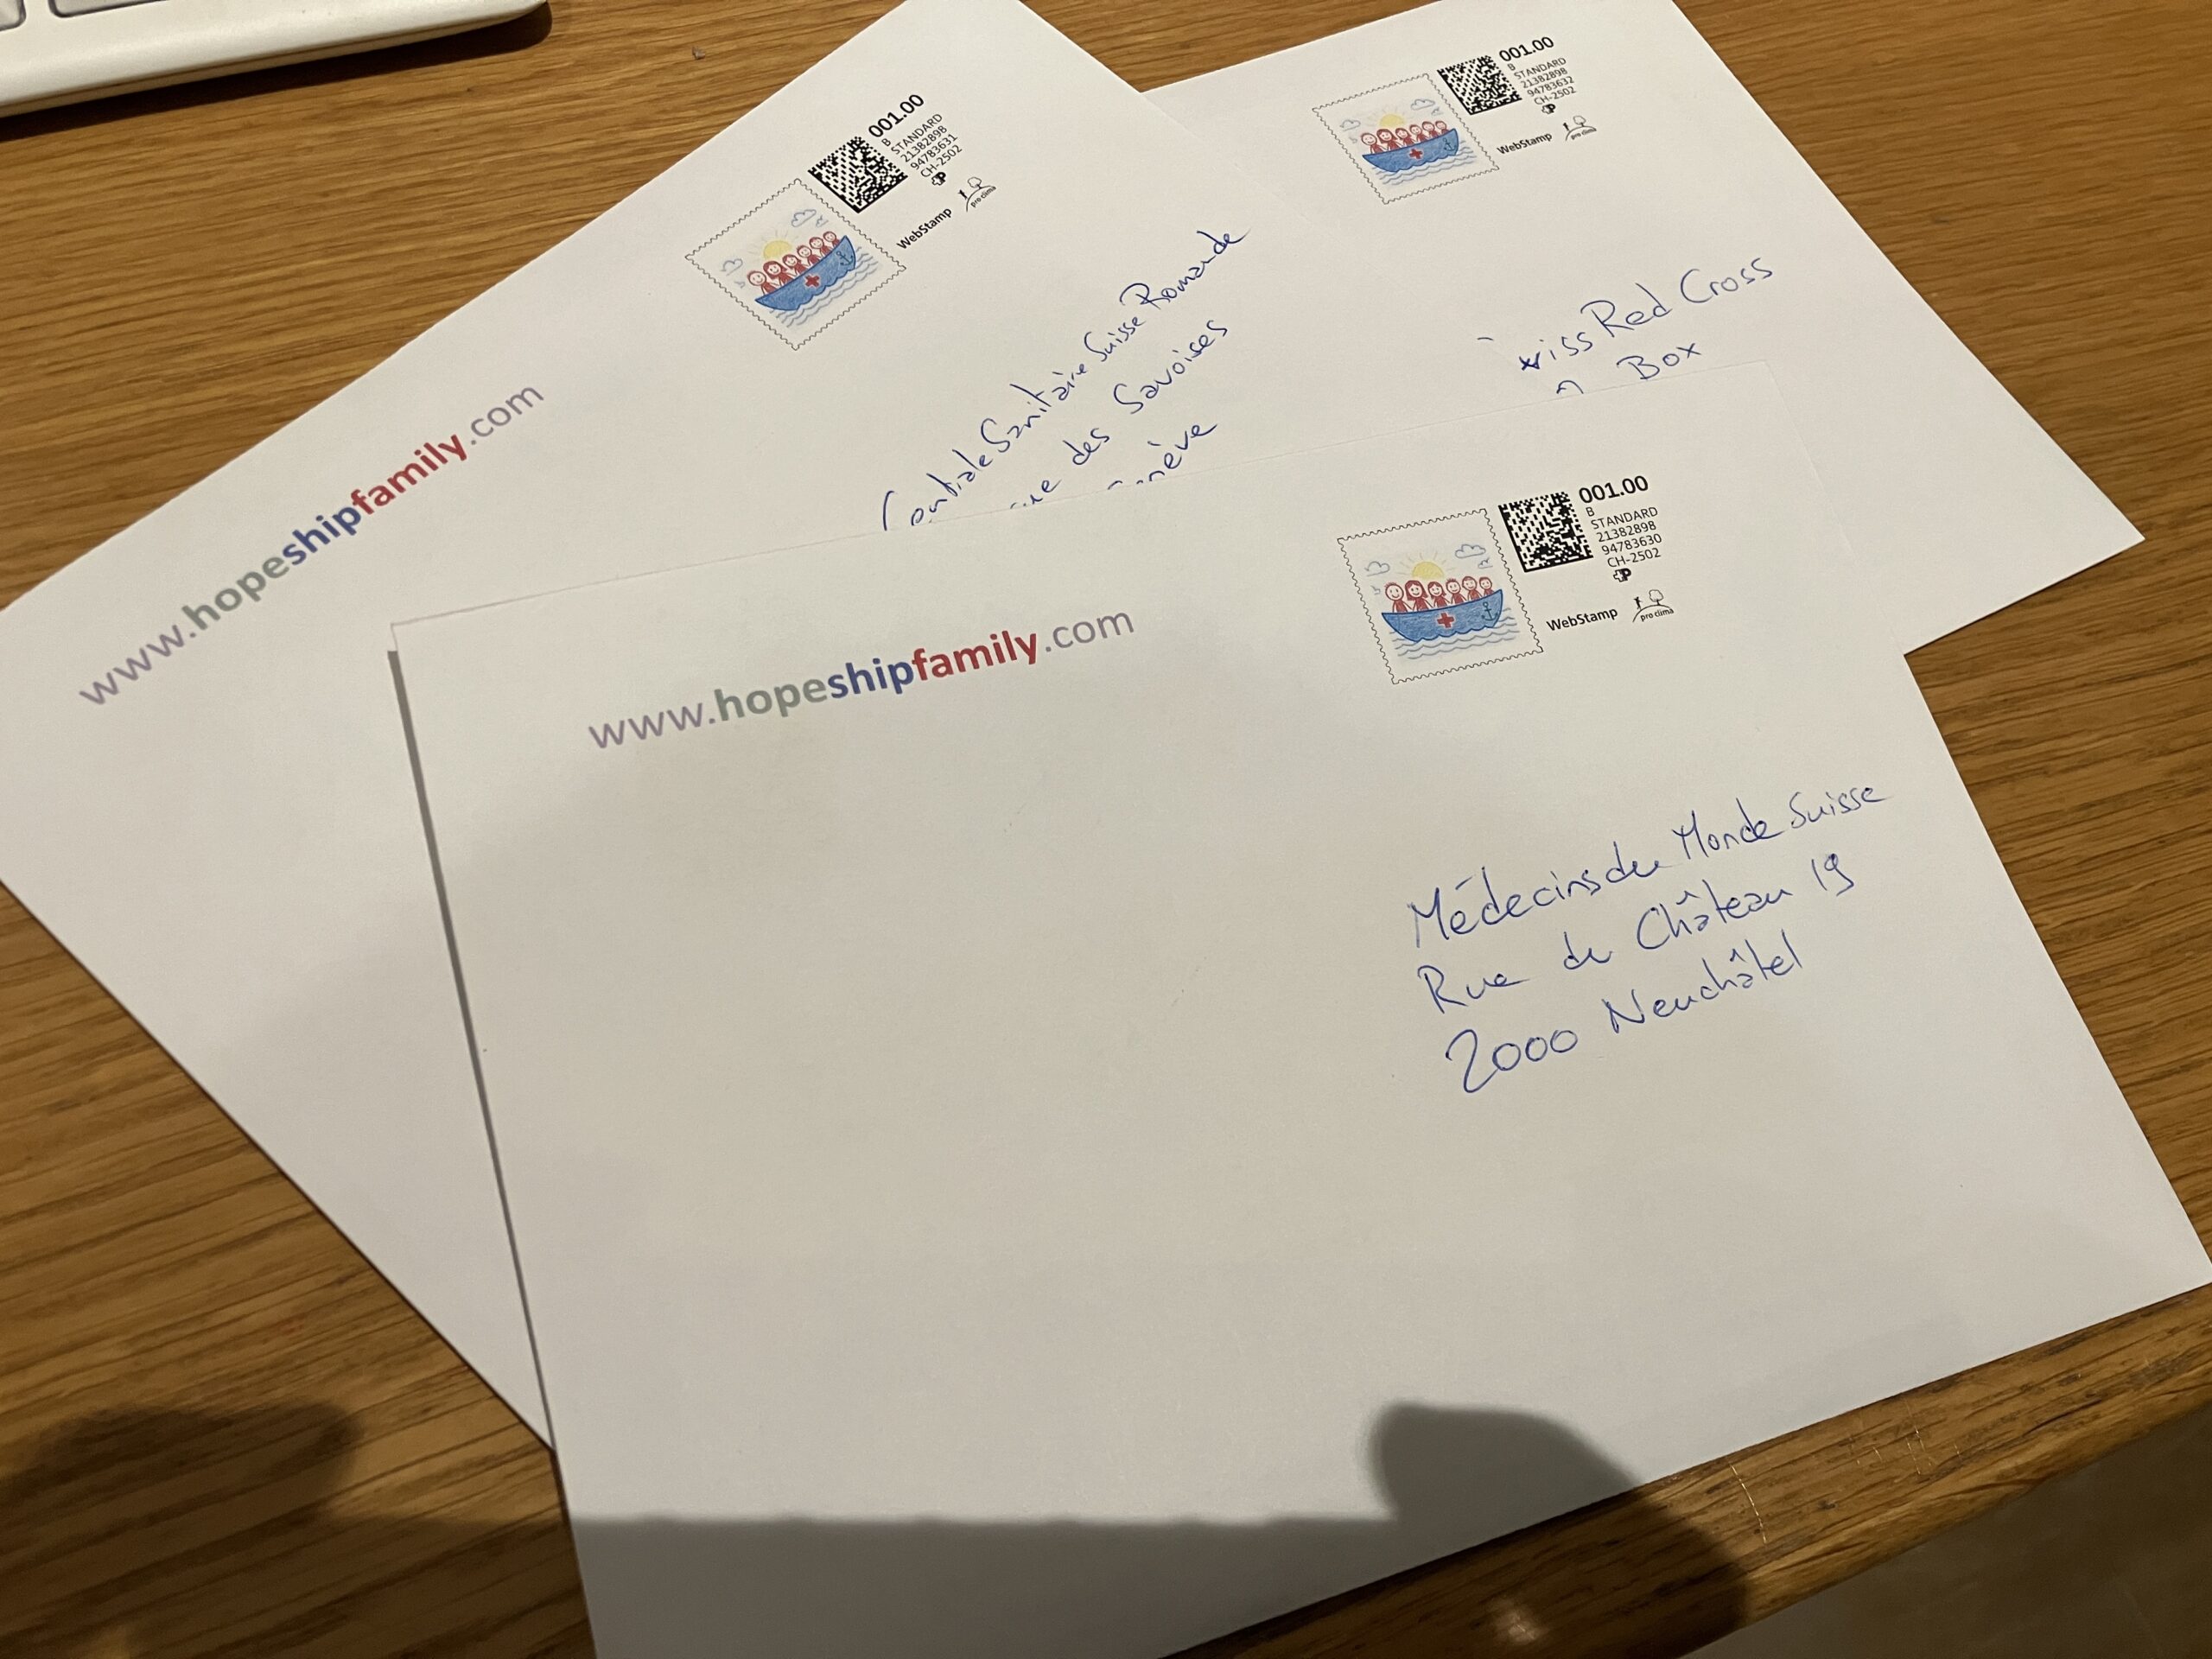 www.hopeshipfamily.com
001.00
B
STANDARD
21382898
94783631
CH-2502
P
WebStamp
pro clima
Centrale Sanitaire Suisse Romande
des Savoises
001.00
B
STANDARD
21382898
94783632
CH-2502
P
WebStamp
pro clima
Red Cross
Box
www.hopeshipfamily.com
001.00
B
STANDARD
21382898
94783630
CH-2502
P
WebStamp
pro clima
Médecins du Monde Suisse
Rue du Château 19
2000 Neuchâtel